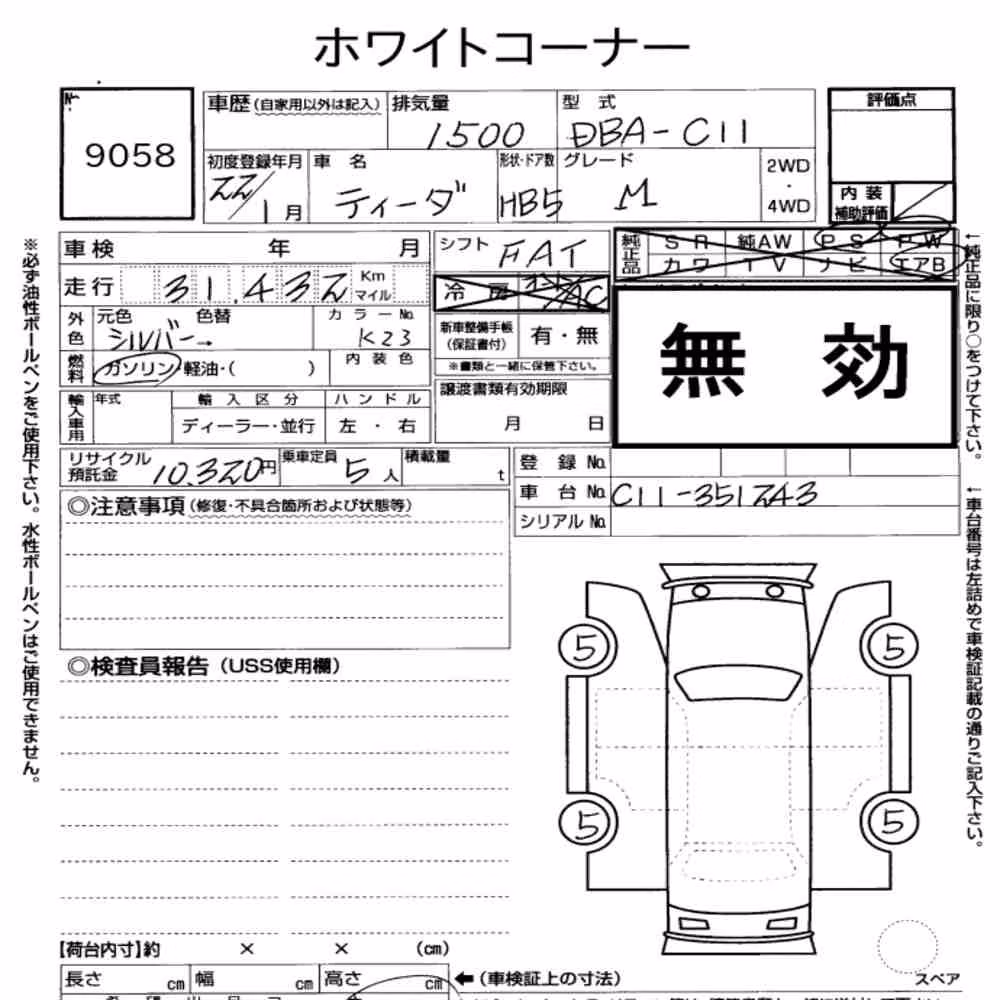 ホワイトコーナー
No.
9058
車歴(自家用以外は記入)
排気量
1500
型式
DBA-C11
評価点
初度登録年月
22/1月
車名
ティーダ
形状・ドア数
HB5
グレード
M
2WD
・
4WD
内装
補助評価
車検 年 月
シフト
FAT
純正品
SR 純AW PS PW
カワ TV ナビ エアB
走行 31.432 Km
マイル
冷房 AC
無効
外色
元色 色替
シルバー→
カラーNo.
K23
新車整備手帳
(保証書付)
有・無
※書類と一緒に保管下さい。
燃料
ガソリン・軽油・( )
内装色
譲渡書類有効期限
月 日
輸入車用
年式
輸入区分
ディーラー・並行
ハンドル
左・右
リサイクル
預託金
10.320円
乗車定員 5人
積載量 t
登録No.
車台No. C11-351243
シリアルNo.
◎注意事項(修復・不具合箇所および状態等)
◎検査員報告(USS使用欄)
5
5
5
5
※必ず油性ボールペンをご使用下さい。水性ボールペンはご使用できません。
←純正品に限り○をつけて下さい。
←車台番号は左詰めで車検証記載の通りご記入下さい。
【荷台内寸】約 × × (cm)
長さ cm 幅 cm 高さ cm
←(車検証上の寸法)
スペア